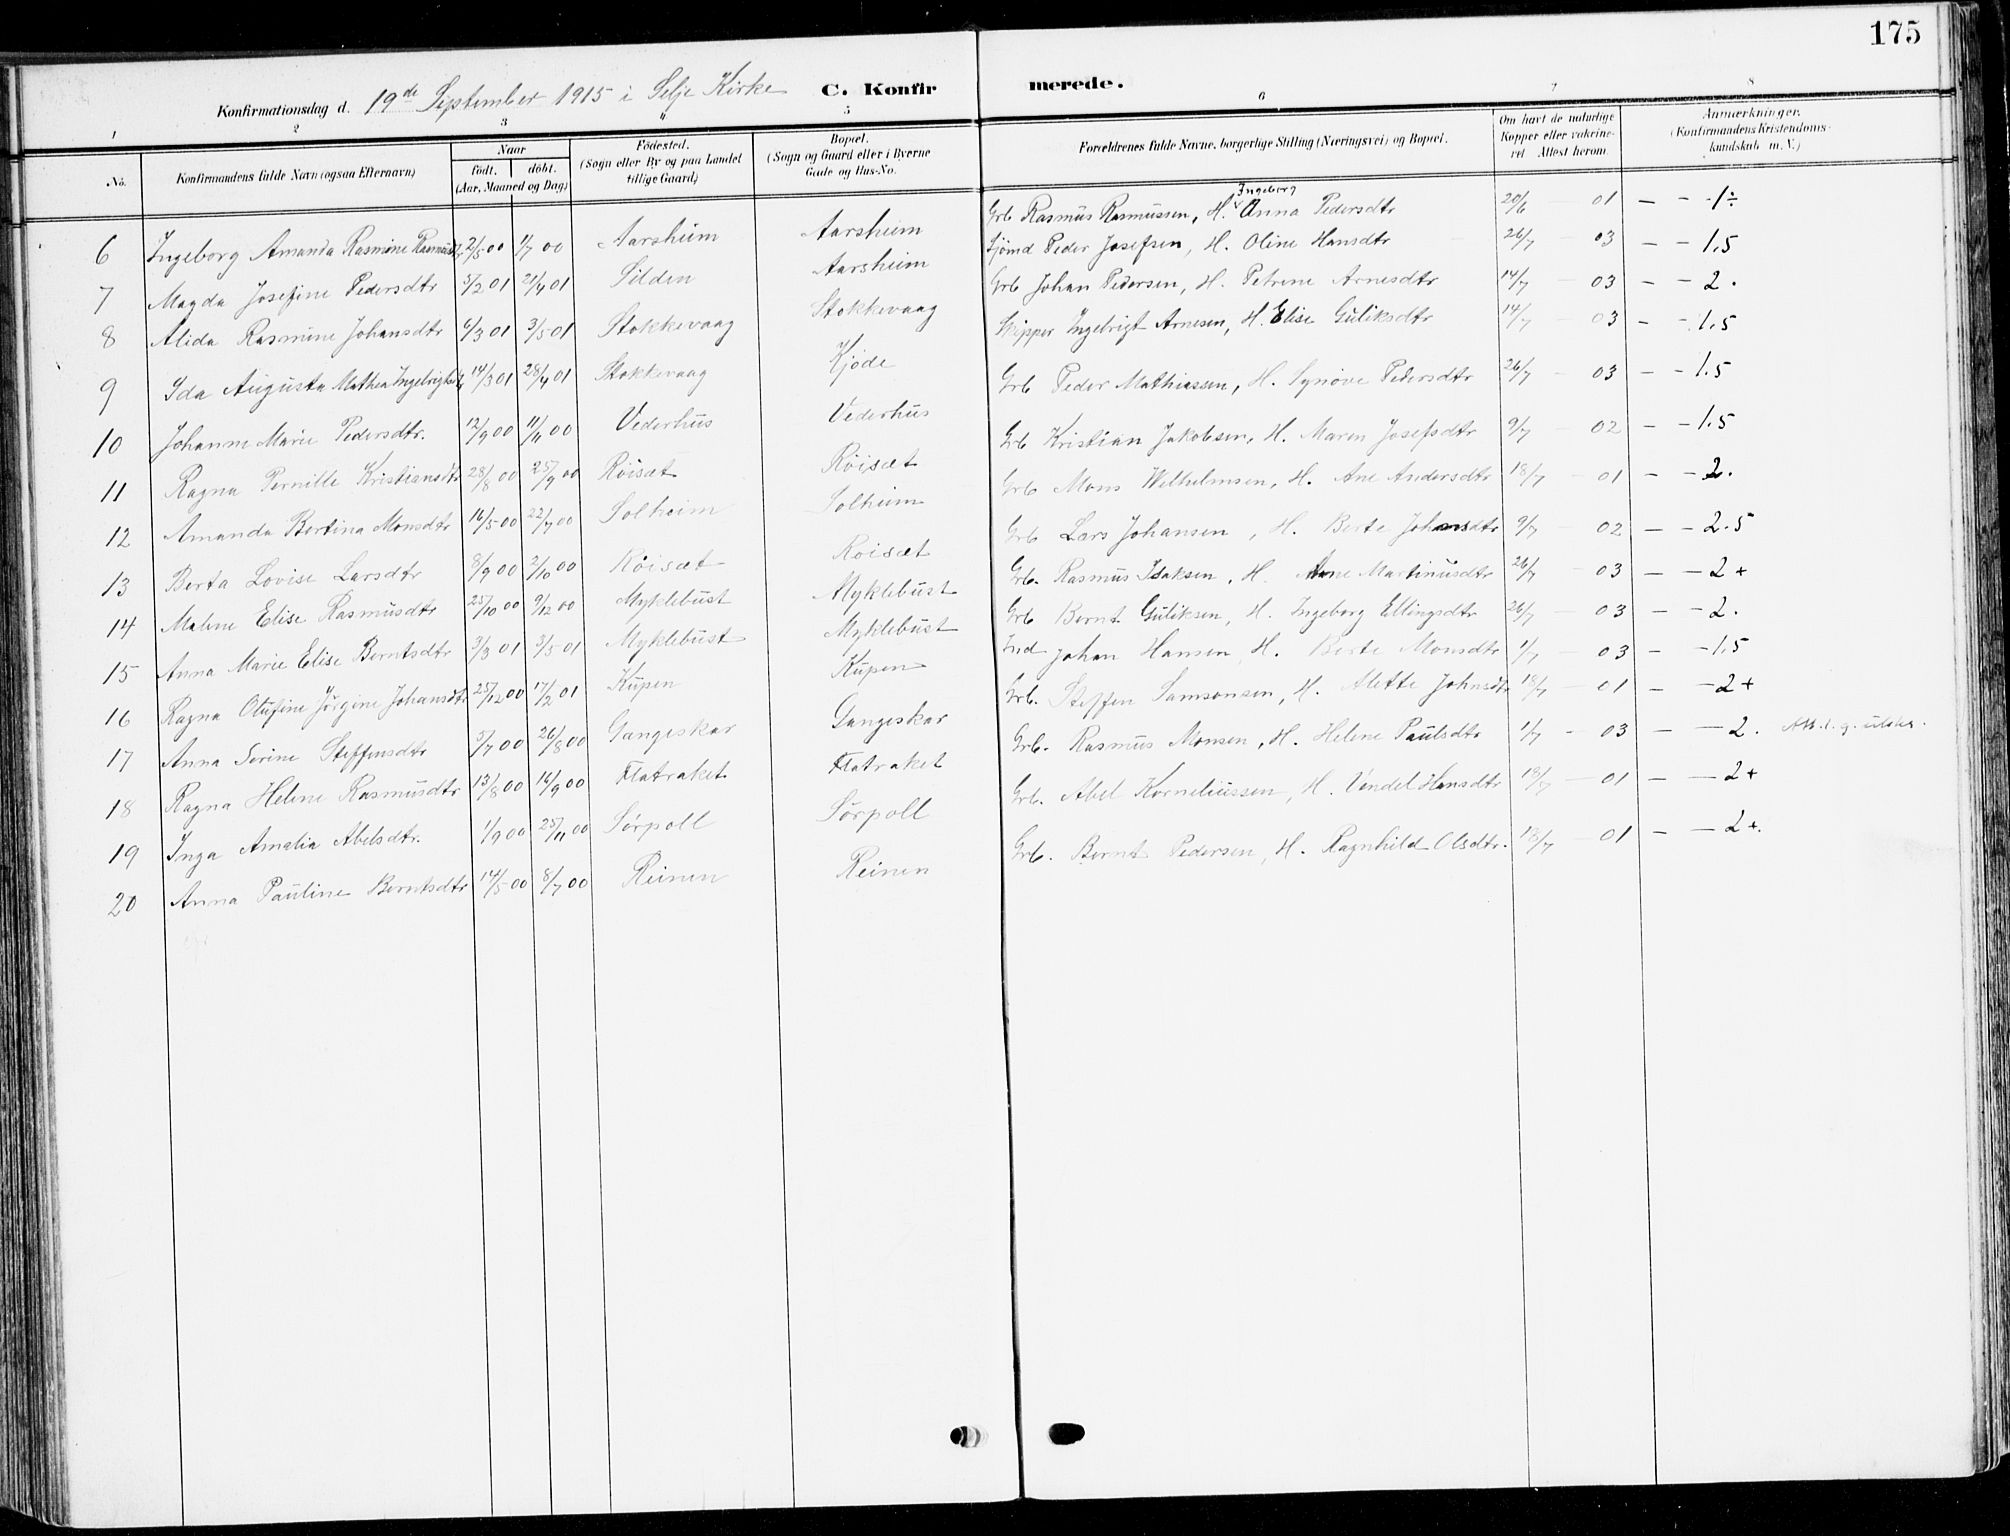 175
Konfirmationsdag d. 19de September 1915 i Selje Kirke C. Konfirmerede.
1 2 3 4 5 6 7 8
No. Konfirmandens fulde Navn (ogsaa Efternavn) Naar født. døbt. (Aar, Maaned og Dag) Fødested. (Sogn eller By og paa Landet tillige Gaard) Bopæl. (Sogn og Gaard eller i Byerne Gade og Hus-No. Forældrenes fulde Navne, borgerlige Stilling (Næringsvei) og Bopæl. Om havt de naturlige Kopper eller vakcineret Attest herom. Anmærkninger. (Konfirmandens Kristendomskundskab m. V.)
6 Ingeborg Amanda Rasmine Rasmusdtr 2/5 00 1/7 00 Aarsheim Aarsheim Grb Rasmus Rasmussen, H. Ingeborg Anna Pedersdtr 20/6 — 01 — - 1÷
7 Magda Josefine Pedersdtr 5/2 01 21/4 01 Silden Aarsheim Sjømd Peder Josefsen, H. Oline Hansdtr 26/7 03 — - 1.5
8 Alida Rasmine Johansdtr 6/3 01 3/5 01 Stokkevaag Stokkevaag Grb Johan Pedersen, H. Petrine Arnesdtr 14/7 — 03 - - 2.
9 Ida Augusta Mathea Ingebrigtsdtr 14/3 01 28/4 01 Stokkevaag Kjøde Skipper Ingebrigt Arnesen, H. Elise Guliksdtr 14/7 — 03 - - 1.5
10 Johanne Marie Pedersdtr. 12/9 00 11/11 00 Vederhus Vederhus Grb Peder Mathiassen, H. Synøve Pedersdtr 26/7 — 03 — - 1.5
11 Ragna Pernille Kristiansdtr 28/8 00 25/9 00 Røisæt Røisæt Grb Kristian Jakobsen, H. Maren Josefsdtr 9/7 — 02 — - 1.5
12 Amanda Bertina Monsdtr 16/5 00 22/7 00 Solheim Solheim Grb Mons Wilhelmsen, H. Ane Andersdtr 18/7 — 01 — - 2.
13 Berta Lovise Larsdtr 8/9 00 2/10 00 Røisæt Røisæt Grb Lars Johansen, H. Berte Johansdtr 9/7 — 02 — - 2.5
14 Malene Elise Rasmusdtr 25/10 00 9/12 00 Myklebust Myklebust Grb. Rasmus Isaksen, H. Anne Martinusdtr 26/7 — 03 — - 2+
15 Anna Marie Elise Berntsdtr 3/3 01 3/5 01 Myklebust Myklebust Grb Bernt Guliksen, H. Ingeborg Ellingsdtr 26/7 — 03 — - 2.
16 Ragna Olufine Jørgine Johansdtr 25/12 00 17/2 01 Kupen Kupen Ind Johan Hansen, H. Berte Monsdtr 1/7 — 03 — - 1.5
17 Anna Serine Steffensdtr 5/7 00 26/8 00 Gangeskar Gangeskar Grb. Steffen Samsonsen, H. Alette Johnsdtr 18/7 — 01 — - 2+
18 Ragna Helene Rasmusdtr 13/8 00 16/9 00 Flatraket Flatraket Grb. Rasmus Monsen, H. Helene Paulsdtr 1/7 — 03 — - 2.
19 Inga Amalia Abelsdtr. 1/9 00 25/11 00 Sørpoll Sørpoll Grb. Abel Korneliussen, H. Vendel Hansdtr 18/7 — 01 — - 2+
20 Anna Pauline Berntsdtr 14/5 00 8/7 00 Reinen Reinen Grb. Bernt Pedersen, H. Ragnhild Olsdtr. 18/7 — 01 — - 2+.